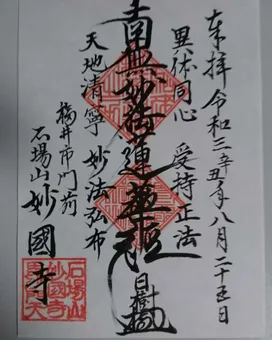 奉拝 令和三辛丑年八月二十五日
異体同心 受持正法
南無妙法蓮華経 日樹
天地清寧 妙法弘布
福井市門前
石場山 妙國寺
石場山
妙國寺